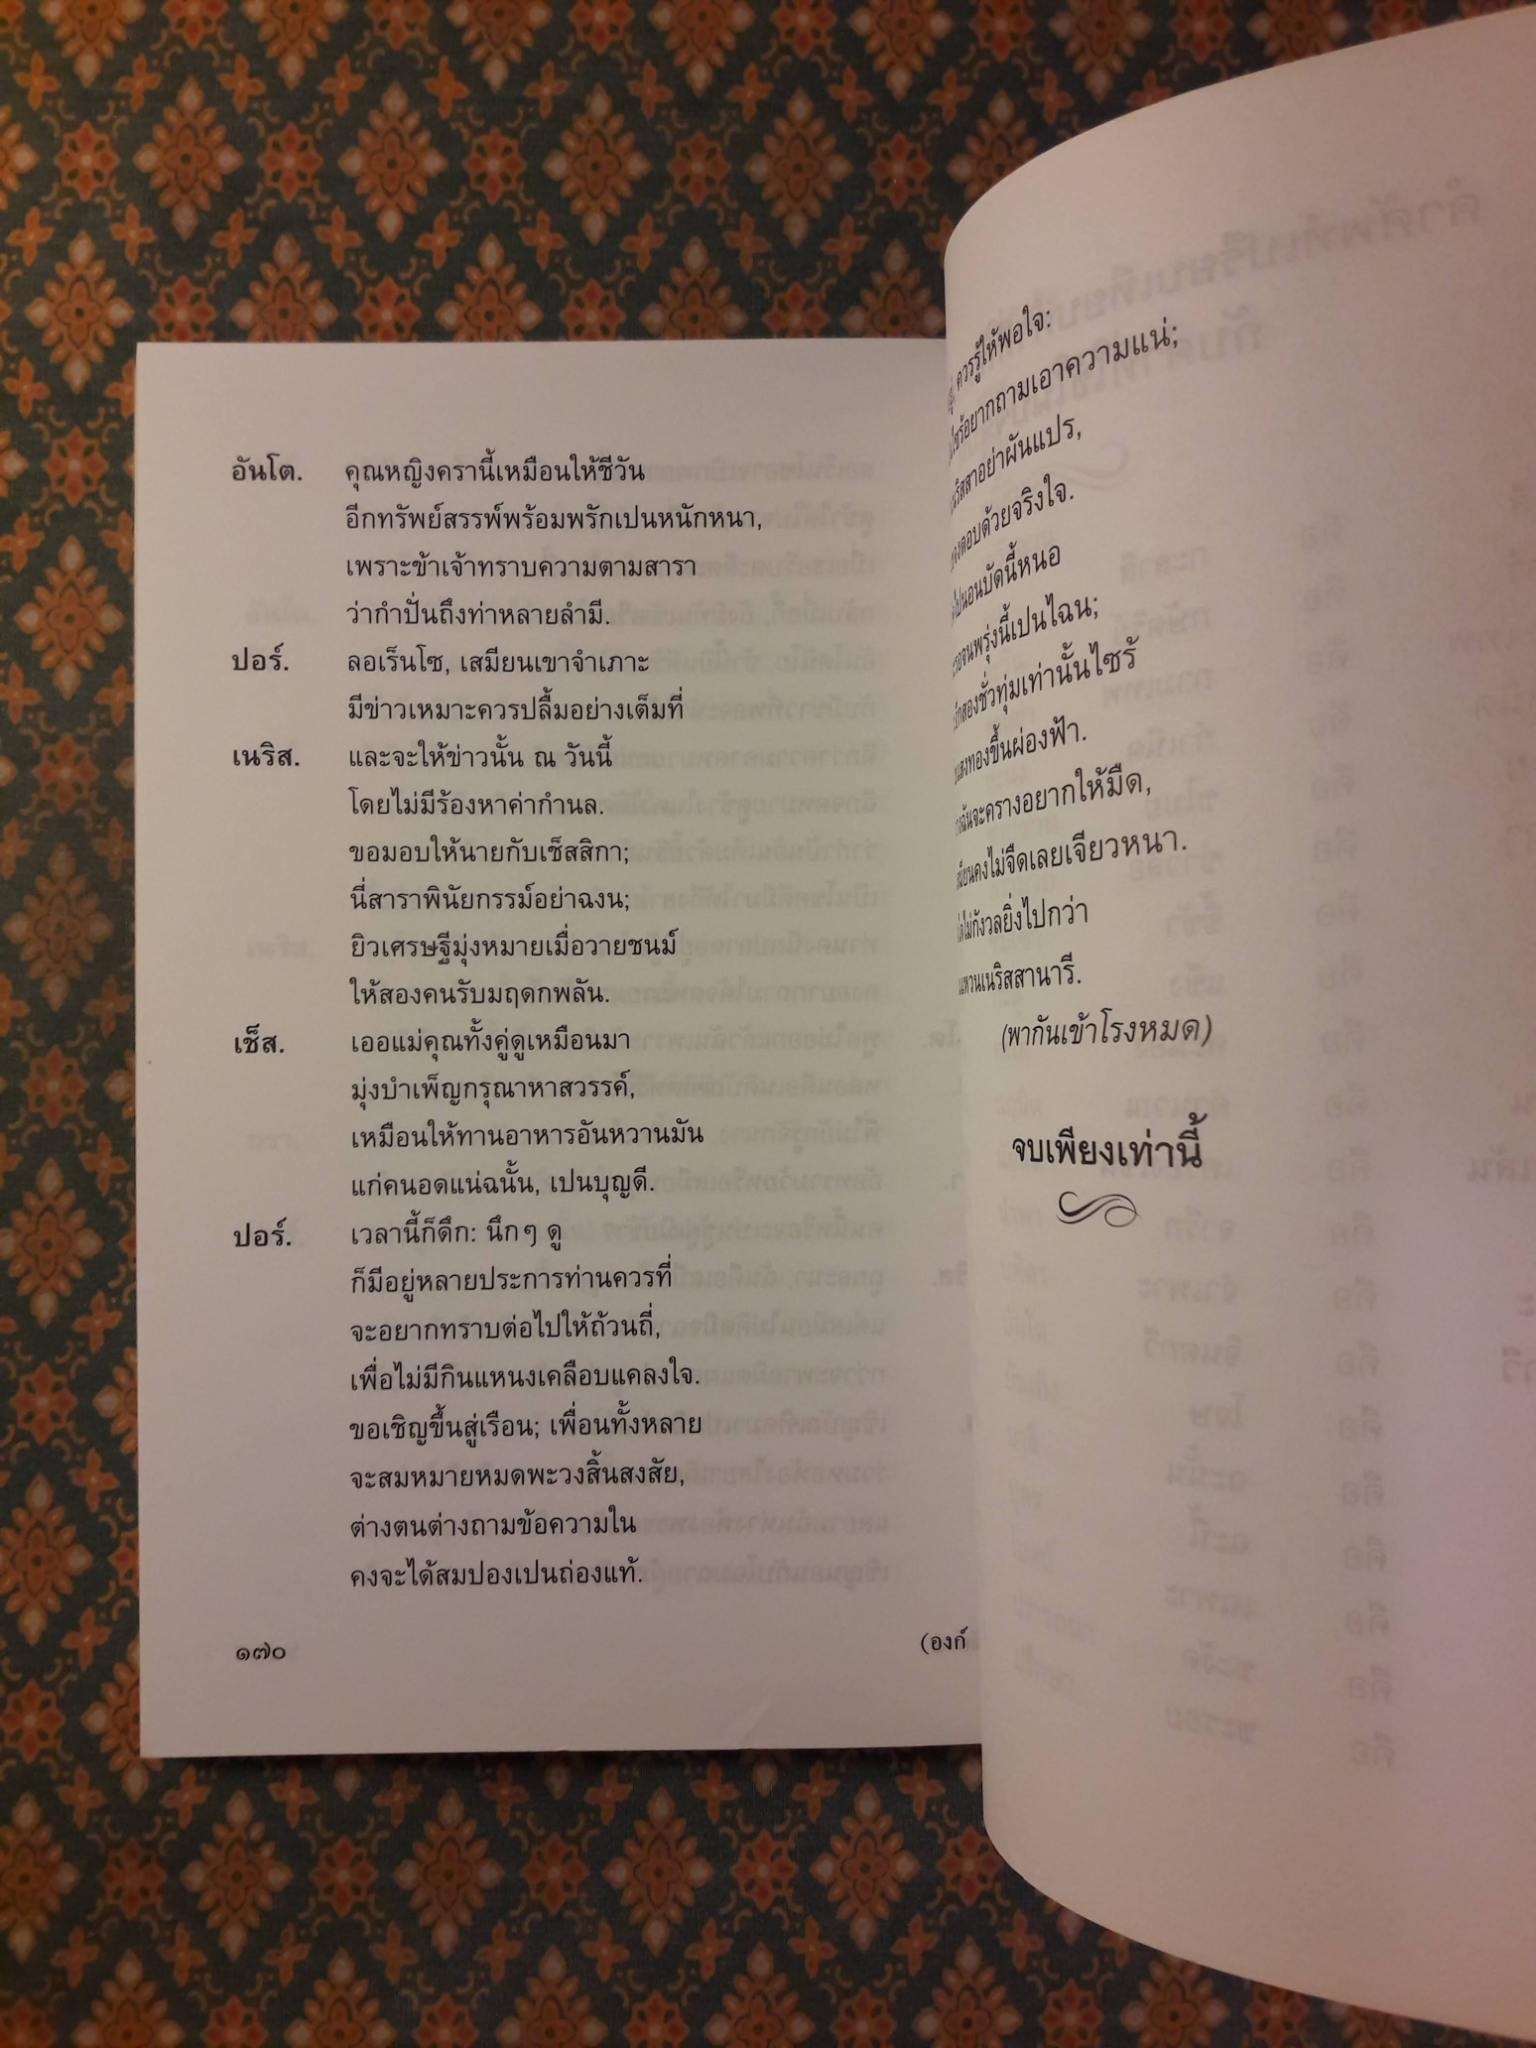 อันโต. คุณหญิงครานี้เหมือนให้ชีวัน
อีกทรัพย์สรรพ์พร้อมพรักเปนหนักหนา,
เพราะข้าเจ้าทราบความตามสารา
ว่ากำปั่นถึงท่าหลายลำมี.
ปอร์. ลอเร็นโซ, เสมียนเขาจำเภาะ
มีข่าวเหมาะควรปลื้มอย่างเต็มที่
เนริส. และจะให้ข่าวนั้น ณ วันนี้
โดยไม่มีร้องหาค่ากำนล.
ขอมอบให้นายกับเช็สสิกา;
นี่สาราพินัยกรรม์อย่าฉงน;
ยิวเศรษฐีมุ่งหมายเมื่อวายชนม์
ให้สองคนรับมฤดกพลัน.
เช็ส. เออแม่คุณทั้งคู่ดูเหมือนมา
มุ่งบำเพ็ญกรุณาหาสวรรค์,
เหมือนให้ทานอาหารอันหวานมัน
แก่คนอดแน่ฉนั้น, เปนบุญดี.
ปอร์. เวลานี้ก็ดึก: นึกๆ ดู
ก็มีอยู่หลายประการท่านควรที่
จะอยากทราบต่อไปให้ถ้วนถี่,
เพื่อไม่มีกินแหนงเคลือบแคลงใจ.
ขอเชิญขึ้นสู่เรือน; เพื่อนทั้งหลาย
จะสมหมายหมดพะวงสิ้นสงสัย,
ต่างตนต่างถามข้อความใน
คงจะได้สมปองเปนถ่องแท้.
๑๗๐
(องก์
ควรรู้ให้พอใจ:
อยากถามเอาความแน่;
อย่าผันแปร,
ตอบด้วยจริงใจ.
นอนบัดนี้หนอ
จนพรุ่งนี้เปนไฉน;
สองชั่วทุ่มเท่านั้นไซร้
แสงทองขึ้นผ่องฟ้า.
ฉันจะครางอยากให้มืด,
คงไม่จืดเลยเจียวหนา.
ไม่กังวลยิ่งไปกว่า
แหวนเนริสสานารี.
(พากันเข้าโรงหมด)
จบเพียงเท่านี้